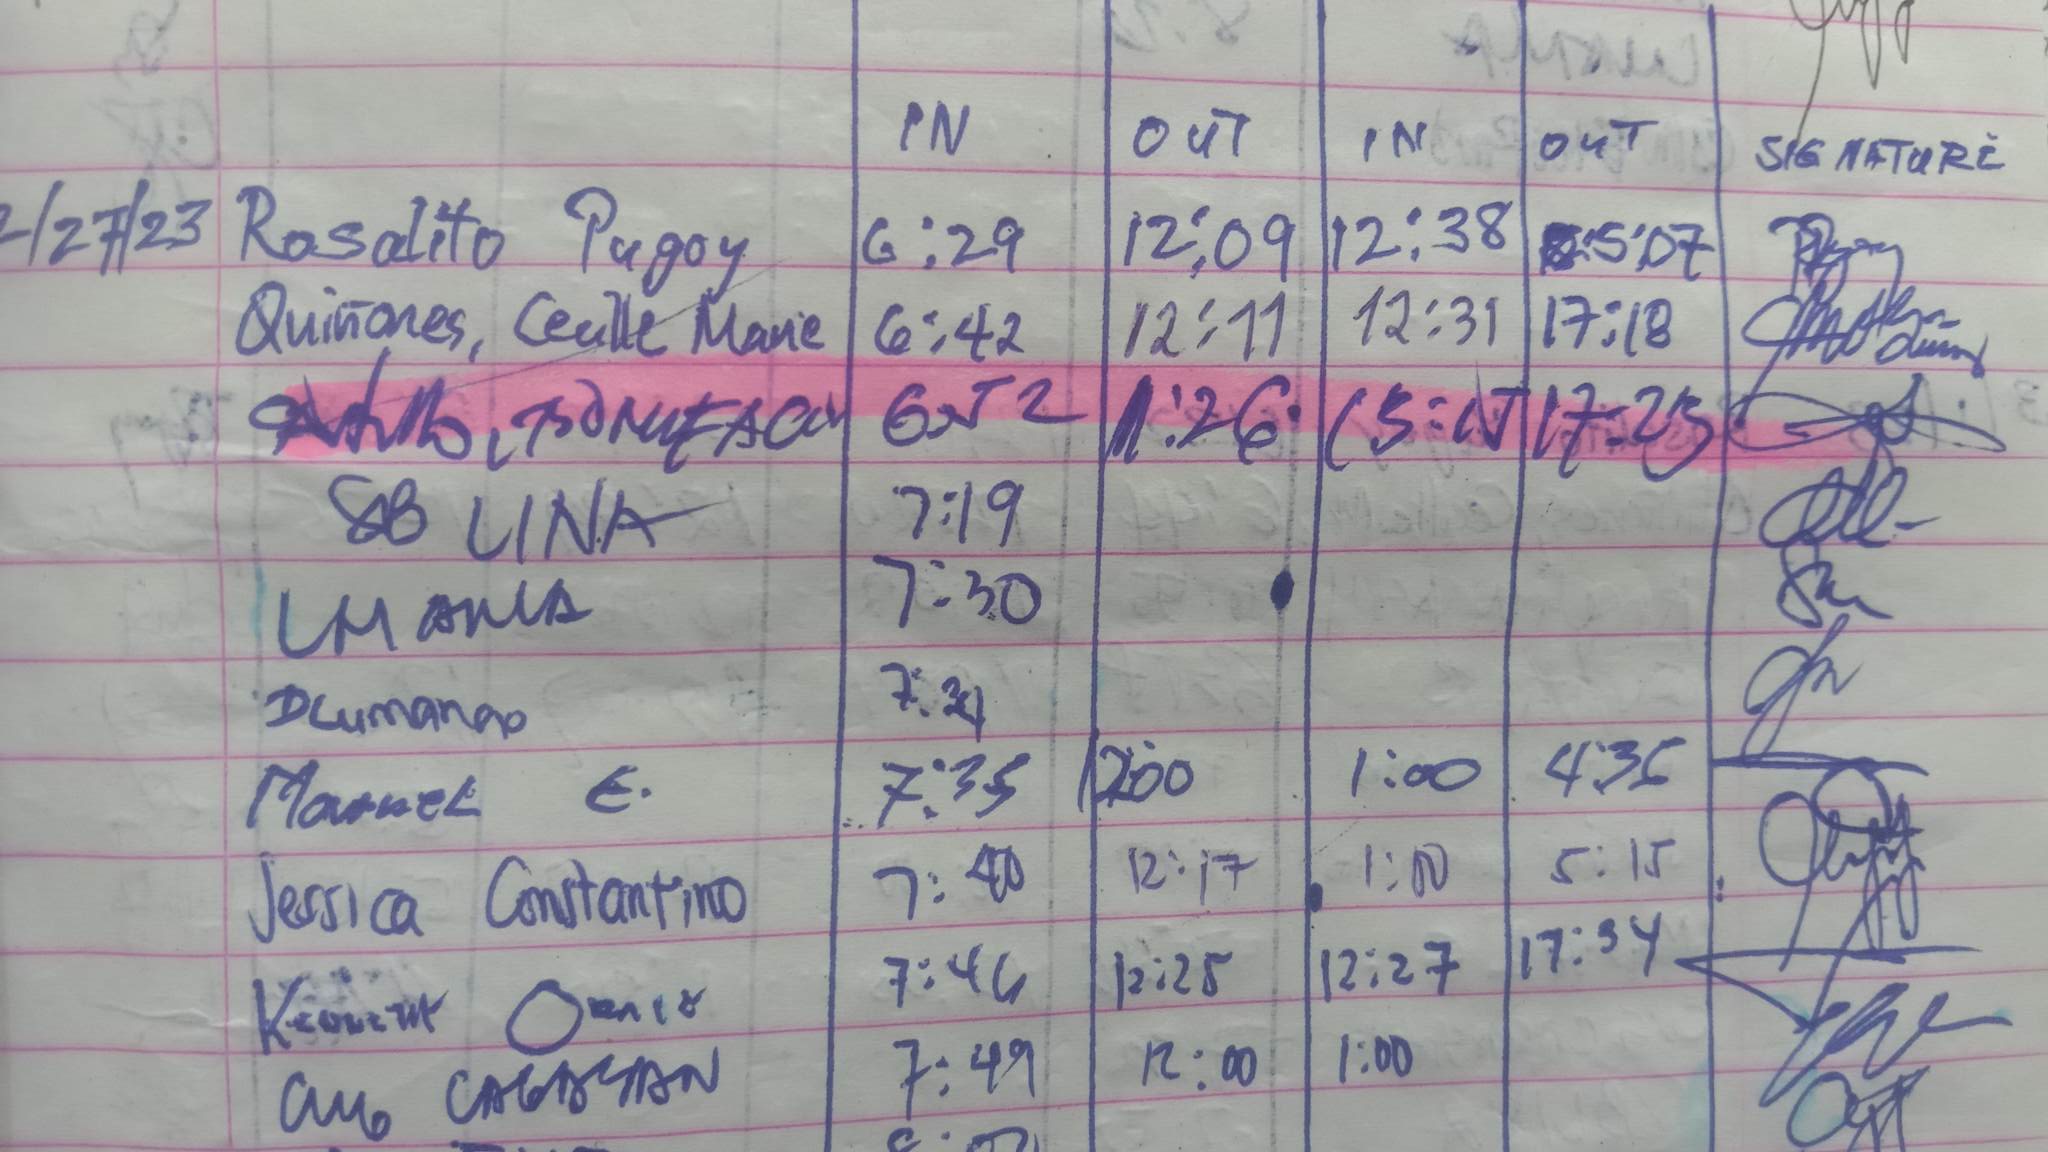 IN OUT IN OUT SIGNATURE
2/27/23 Rosalito Pugoy 6:29 12:09 12:38 5:07
Quiñones, Cecille Marie 6:42 12:11 12:31 17:18
BONIFACIO 6:52 1:26 15:15 17:25
SB LINA 7:19
7:30
Dlumanao 7:31
Manuel E. 7:35 1200 1:00 4:35
Jessica Constantino 7:40 12:17 1:10 5:15
Kenneth 7:46 12:25 12:27 17:34
CAGAYAN 7:49 12:00 1:00